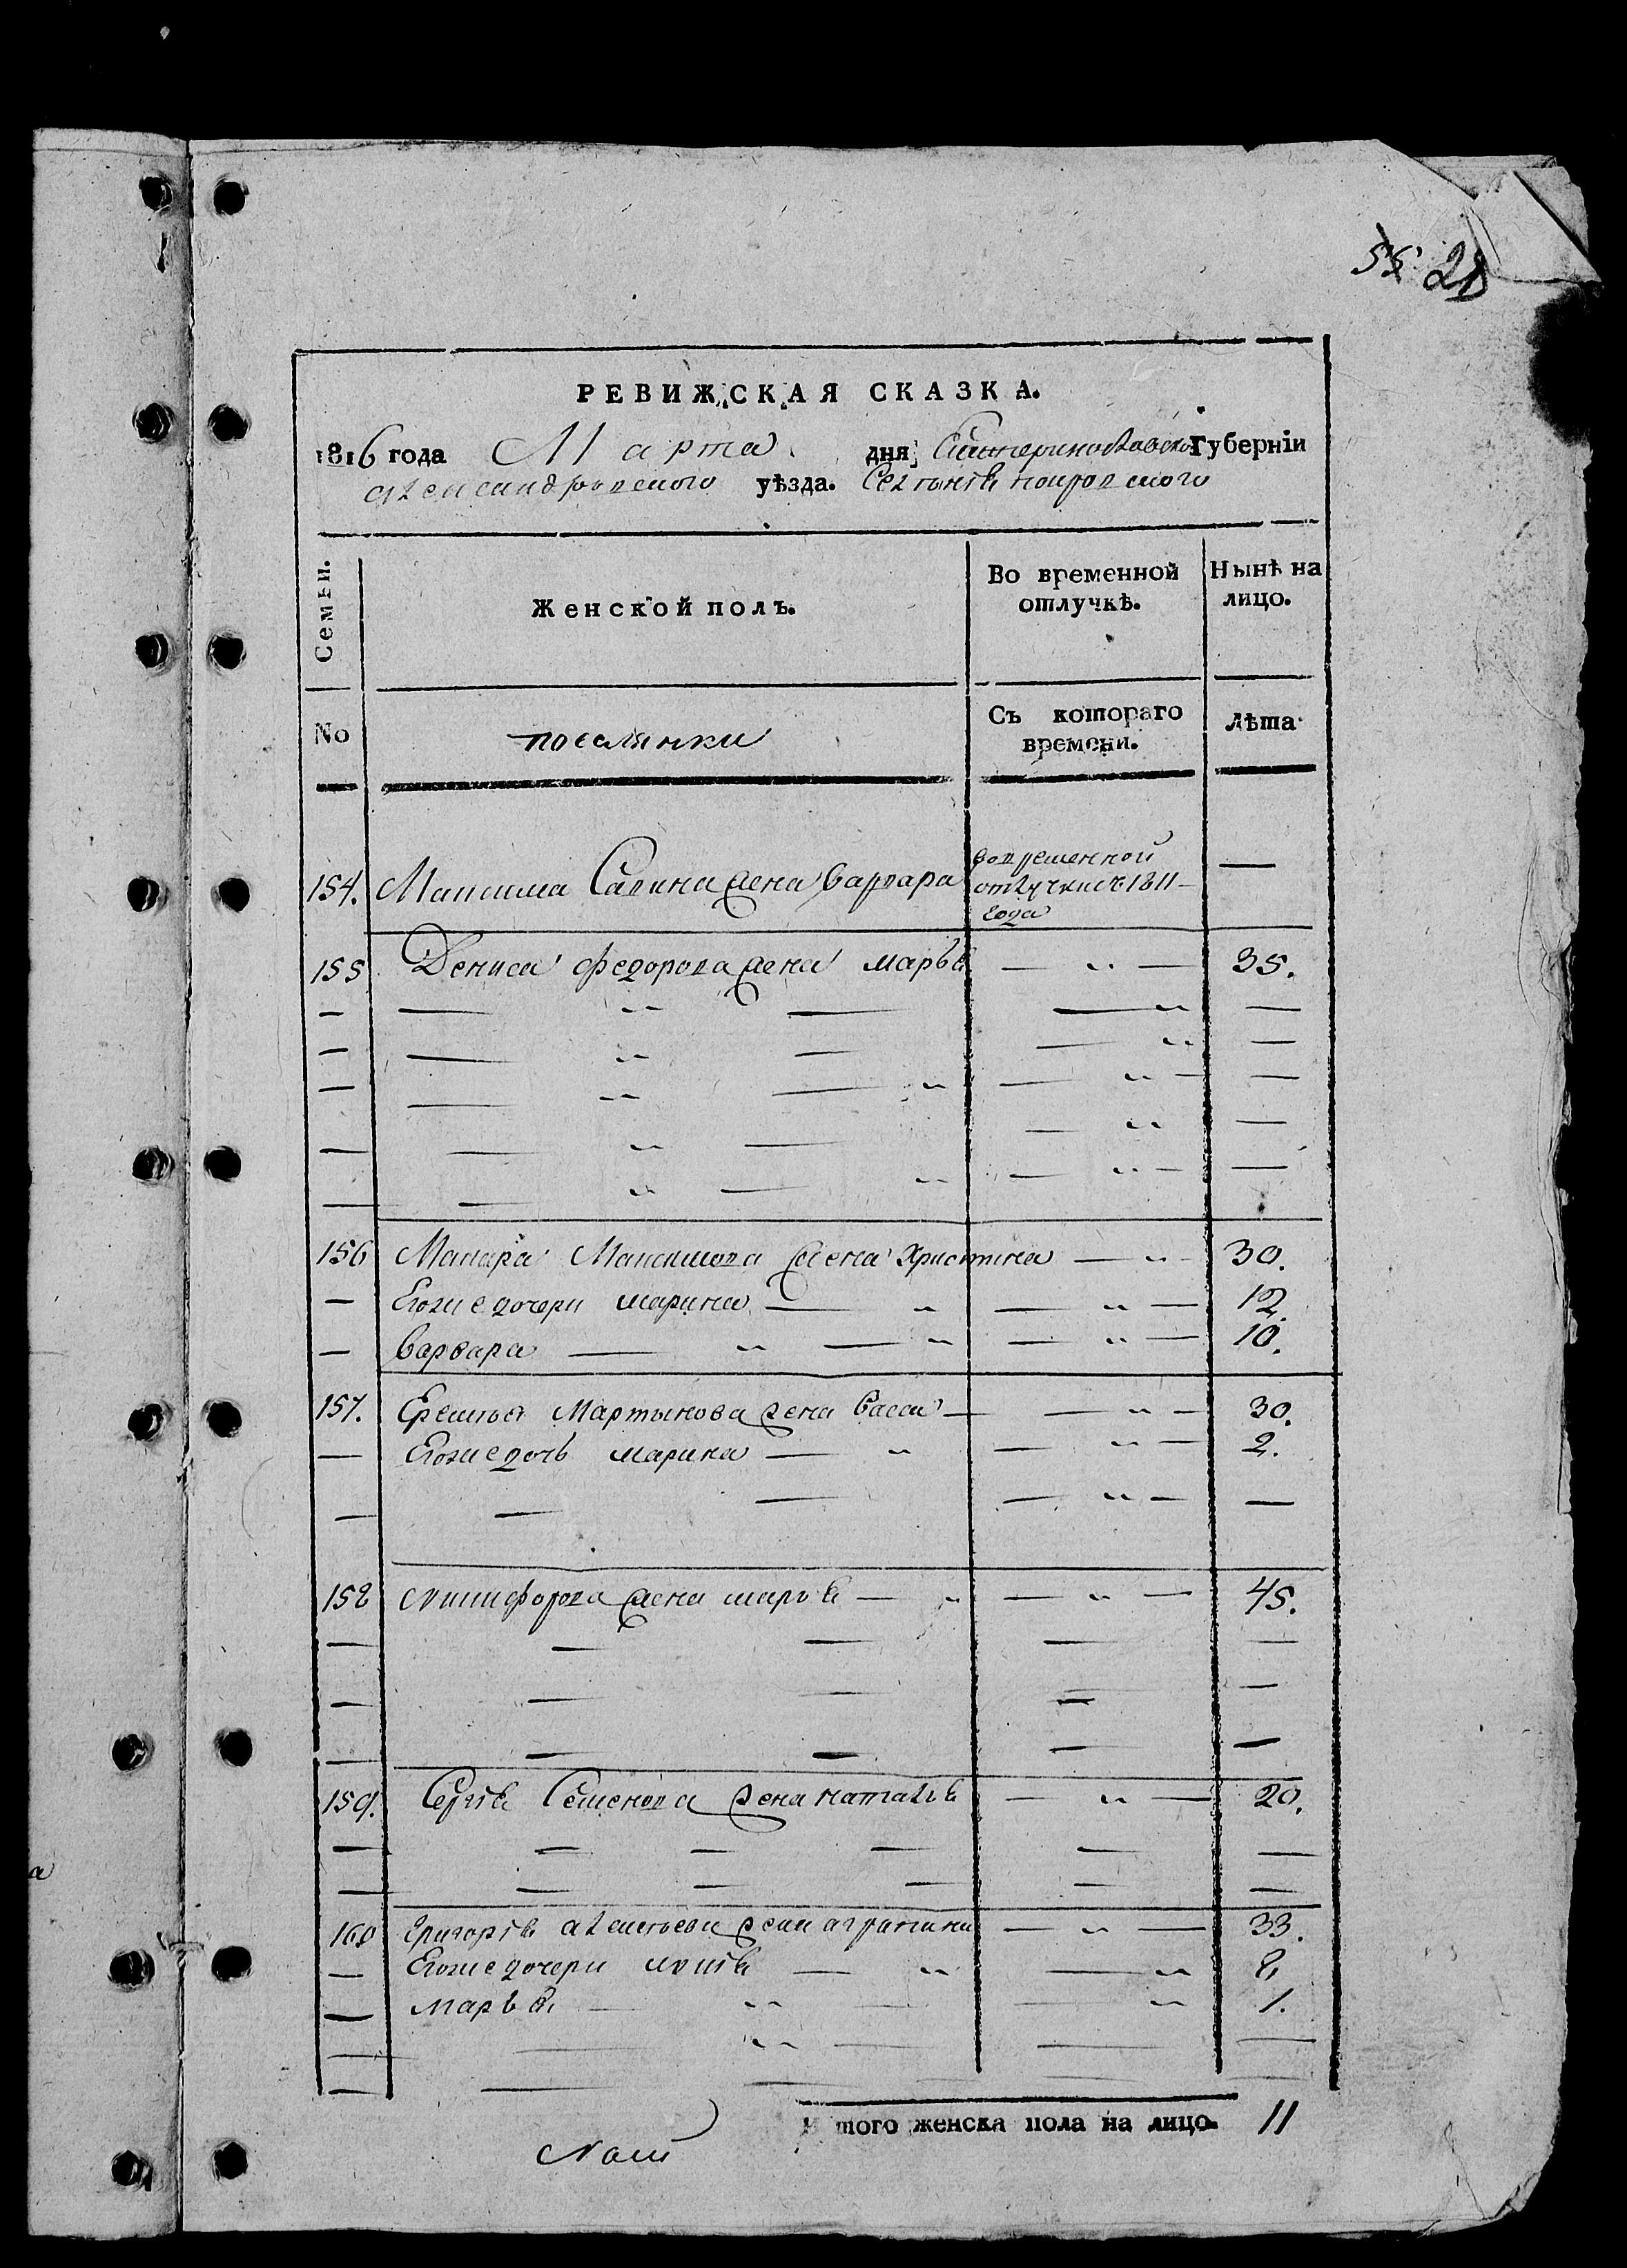 55 21
РЕВИЖСКАЯ СКАЗКА.
1816 года Марта дня Екатеринославской Губерніи
Александровского уѣзда. Селенія покровского
Семьи. Женской полъ. Во временной отлучкѣ. Нынѣ на лицо.
No поселянки Съ котораго времени. Лѣта
154. Максима Савина жена варвара вовременной отлучки съ 1811 года —
155 Дениса федорова жена марья — „ — 35.
156 Макара Максимова жена Христина — „ 30.
— Егоже дочери марина — „ — „ — 12.
— варвара — „ — „ — „ — 10.
157. Еремѣя Мартынова жена Васса — — „ — 30.
— Егоже дочь марина — „ — „ — 2.
158 Никифорова жена марья — „ — „ — 45.
159. Сергѣя Семенова жена наталья — „ — 20.
160 Григорія алексѣева жена аграпина — „ — 33.
— Егоже дочери — „ — „ 8.
— марья — „ — „ 1.
Итого женска пола на лицо. 11